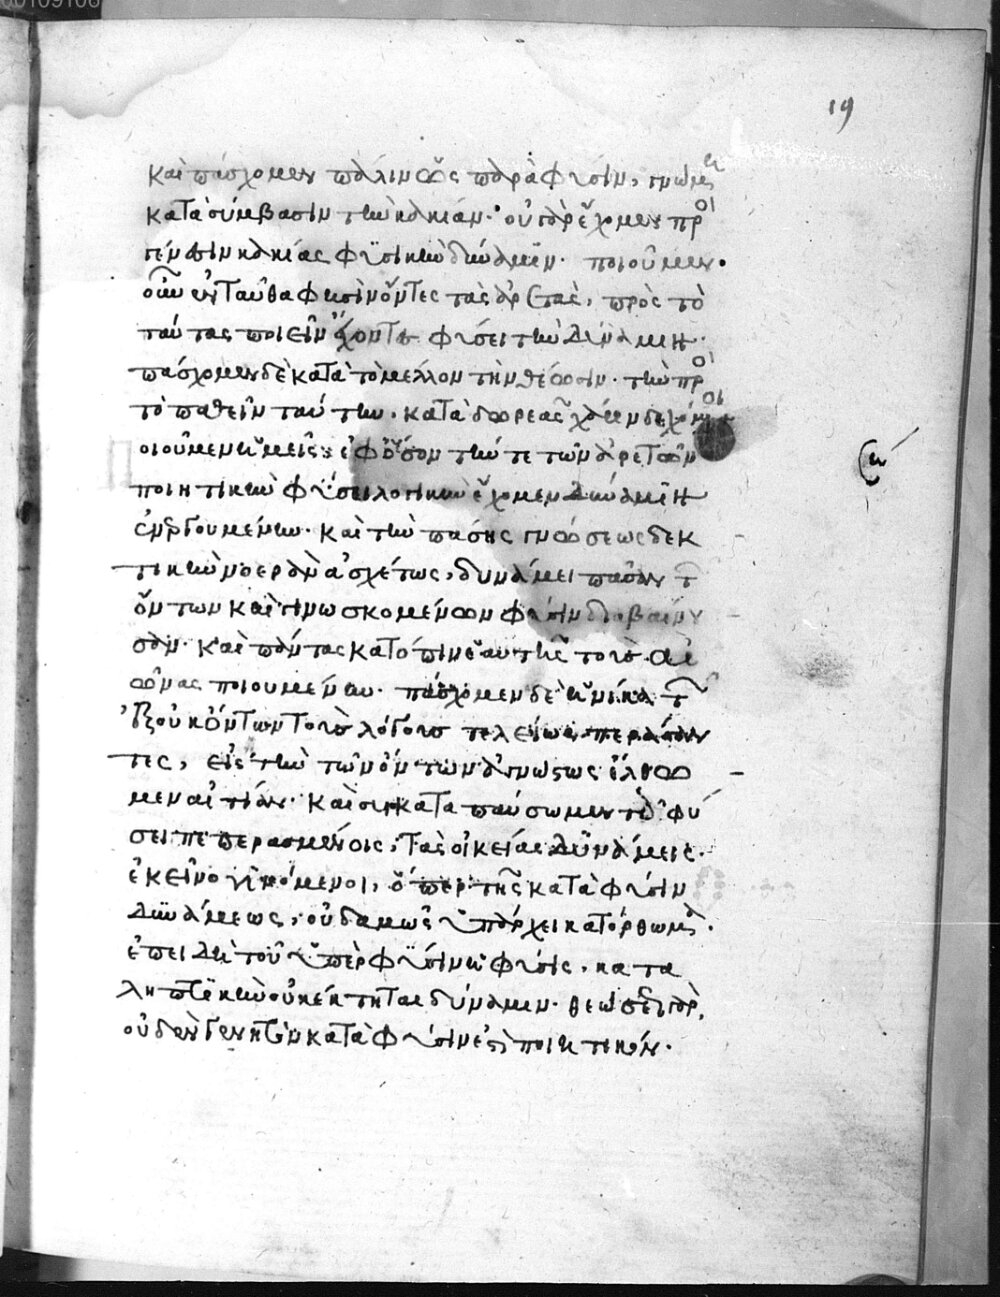 καὶ πάσχομεν πάλιν ὡς παρὰ φύσιν, γνώμη
κατὰ σύμβασιν τὴν κακίαν· οὐ γὰρ ἔχομεν πρὸ
γένεσιν κακίας φυσικὴν δύναμιν· ποιοῦμεν
οὖν ἐνταῦθα φυσιν ὄντες τὰς ἀρετὰς, πρὸς τὸ
ταύτας ποιεῖν ἔχοντες φύσει τὴν δύναμιν·
πάσχομεν δὲ κατὰ τὸ μέλλον τὴν θέωσιν· τὴν πρὸ
τὸ παθεῖν ταύτην· κατὰ δωρεὰς χάριν δεχόμενοι
ποιοῦμεν ἡμεῖς· ἐφόσον τήν τε τῶν ἀρετῶν
ποιητικὴν φύσει λογικὴν ἔχομεν δύναμιν
ἐνεργουμένην· καὶ τὴν πάσης γνώσεως δεκ
τικὴν νοερὰν ἀσχέτως, δυνάμει πᾶσαν τ
ὄντων καὶ γινωσκομένων φύσιν διαβαίνου
σαν· καὶ πάντας κατόπιν ἑαυτῆς τοὺς αἰ
ῶνας ποιουμένην· πάσχομεν δὲ ἡνίκα τ
ἐξ οὐκ ὄντων τοὺς λόγους τελείως περάσαν
τες, εἰς τὴν τῶν ὄντων ἀγνώστως ἔλθω
μεν αἰτίαν· καὶ συγκαταπαύσωμεν τοῖς φύ
σει πεπερασμένοις, τὰς οἰκείας δυνάμεις·
ἐκεῖνο γινόμενοι, ὅπερ τῆς κατὰ φύσιν
δυνάμεως, οὐδαμῶς ὑπάρχει κατόρθωμα·
ἐπειδὴ τοῦ ὑπὲρ φύσιν ἡ φύσις, κατα
ληπτικὴν οὐ κέκτηται δύναμιν· θεώσεως γὰρ,
οὐδὲν γενητὸν κατὰ φύσιν ἐστὶ ποιητικόν·
19